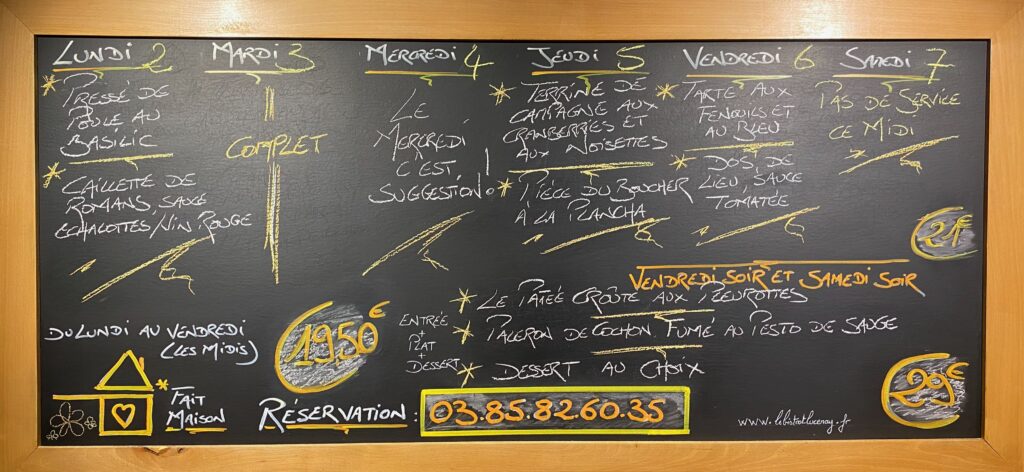 LUNDI 2
* PRESSÉ DE
POULE AU
BASILIC
* CAILLETTE DE
ROMANS, SAUCE
ECHALOTTES/VIN ROUGE
MARDI 3
COMPLET
MERCREDI 4
LE
MERCREDI
C'EST
SUGGESTION!
JEUDI 5
* TERRINE DE
CAMPAGNE AUX
CRANBERRIES ET
AUX NOISETTES
* PIÈCE DU BOUCHER
À LA PLANCHA
VENDREDI 6
* TARTE AUX
FENOUILS ET
AU BLEU
* DOS DE
LIEU, SAUCE
TOMATÉE
SAMEDI 7
PAS DE SERVICE
CE MIDI
21€
VENDREDI SOIR ET SAMEDI SOIR
* LE PÂTÉE CROÛTE AUX PLEUROTTES
* PALERON DE COCHON FUMÉ AU PESTO DE SAUGE
* DESSERT AU CHOIX
29€
DU LUNDI AU VENDREDI
(LES MIDIS)
1950€
ENTRÉE
+
PLAT
+
DESSERT
* FAIT
MAISON
RÉSERVATION: 03.85.82.60.35
www.lebistrotlucenay.fr